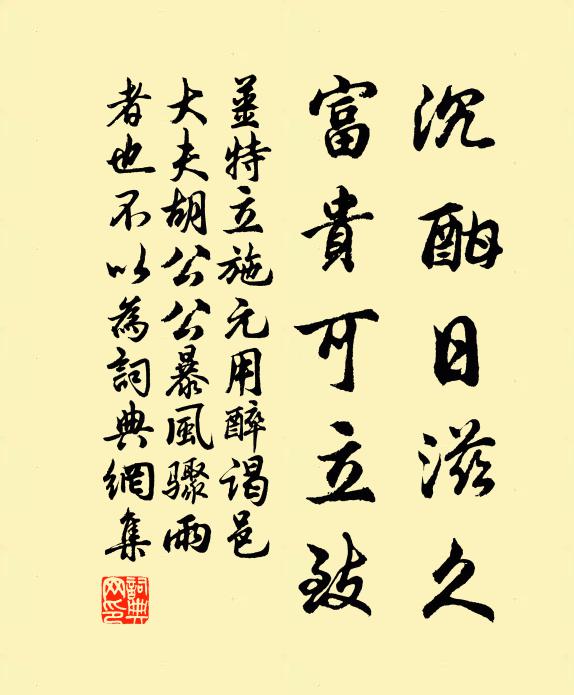 沉酣日滋久
富貴可立致
薑特立施元用醉謁邑
大夫胡公公暴風驟雨
者也不以為詞典網集
詞典網印